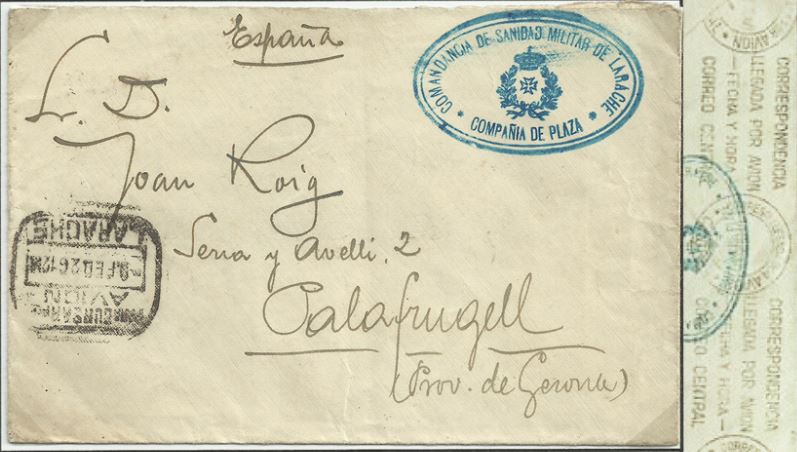 España
COMANDANCIA DE SANIDAD MILITAR DE LARACHE
* COMPAÑIA DE PLAZA *
Joan Roig
Serra y Avelli, 2
Palafrugell
(Prov. de Gerona)
LARACHE
9.FEB.26.12M
AVION
CORRESPONDENCIA
LLEGADA POR AVION
—FECHA Y HORA—
CORREO CENTRAL
CORRESPONDENCIA
LLEGADA POR AVION
FECHA Y HORA—
CORREO CENTRAL